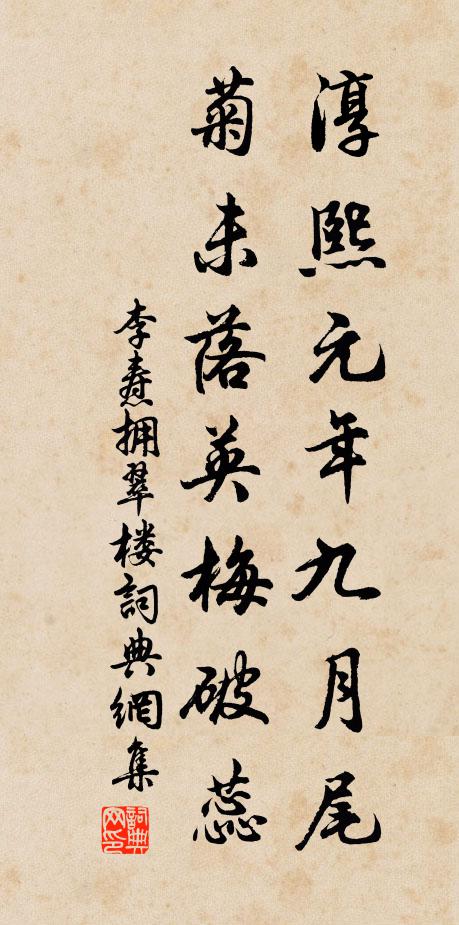 淳熙元年九月尾
菊未落英梅破蕊
李燾拥翠楼詞典網集
詞典网印